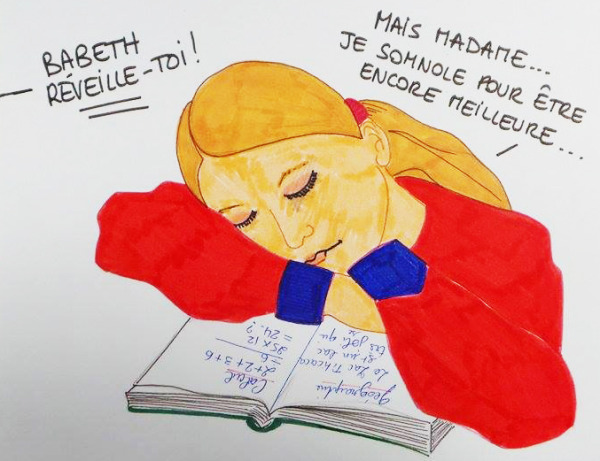 BABETH
RÉVEILLE-TOI!
MAIS MADAME...
JE SOMNOLE POUR ÊTRE
ENCORE MEILLEURE...
Géographie
Le Lac Titicaca
est un lac
très joli qui
se
Calcul
2+2+3+6
=6
25 x 12
= 24.?